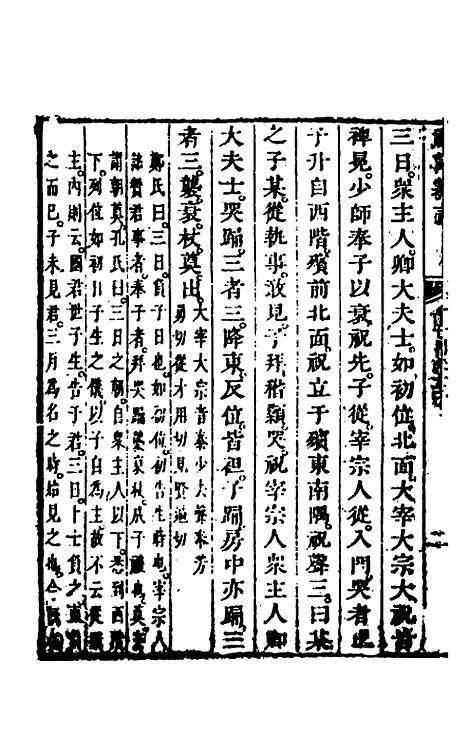 三日。衆主人。卿大夫士。如初位。北面。大宰大宗大祝皆
裨冕。少師奉子以衰。祝先。子從。宰宗人從。入門。哭者止
子升自西階。殯前北面。祝立于殯東南隅。祝聲三。曰某
之子某。從執事。敢見。子拜稽顙。哭。祝宰宗人衆主人卿
大夫士。哭踊。三者三。降東反位。皆袒。子踊。房中亦踊。三
者三。襲衰。杖。奠出。
大宰大宗音泰少大奉芳
勇切從才用切見賢遍切
鄭氏曰。三日。負子日也。如初位。初告生時也。宰宗人
詔贊君事者。奉子者。拜哭踊。襲衰杖。成子禮也。奠亦
謂朝奠。孔氏曰。三日之朝。自衆主人以下。悉到西階
下。列位如初日子生之儀。以子自爲主。故不云從攝
主。内則云。國君世子生。告于君。三日。卜士負之。
之而已。子未見君。三月爲名之時。始見之也。今